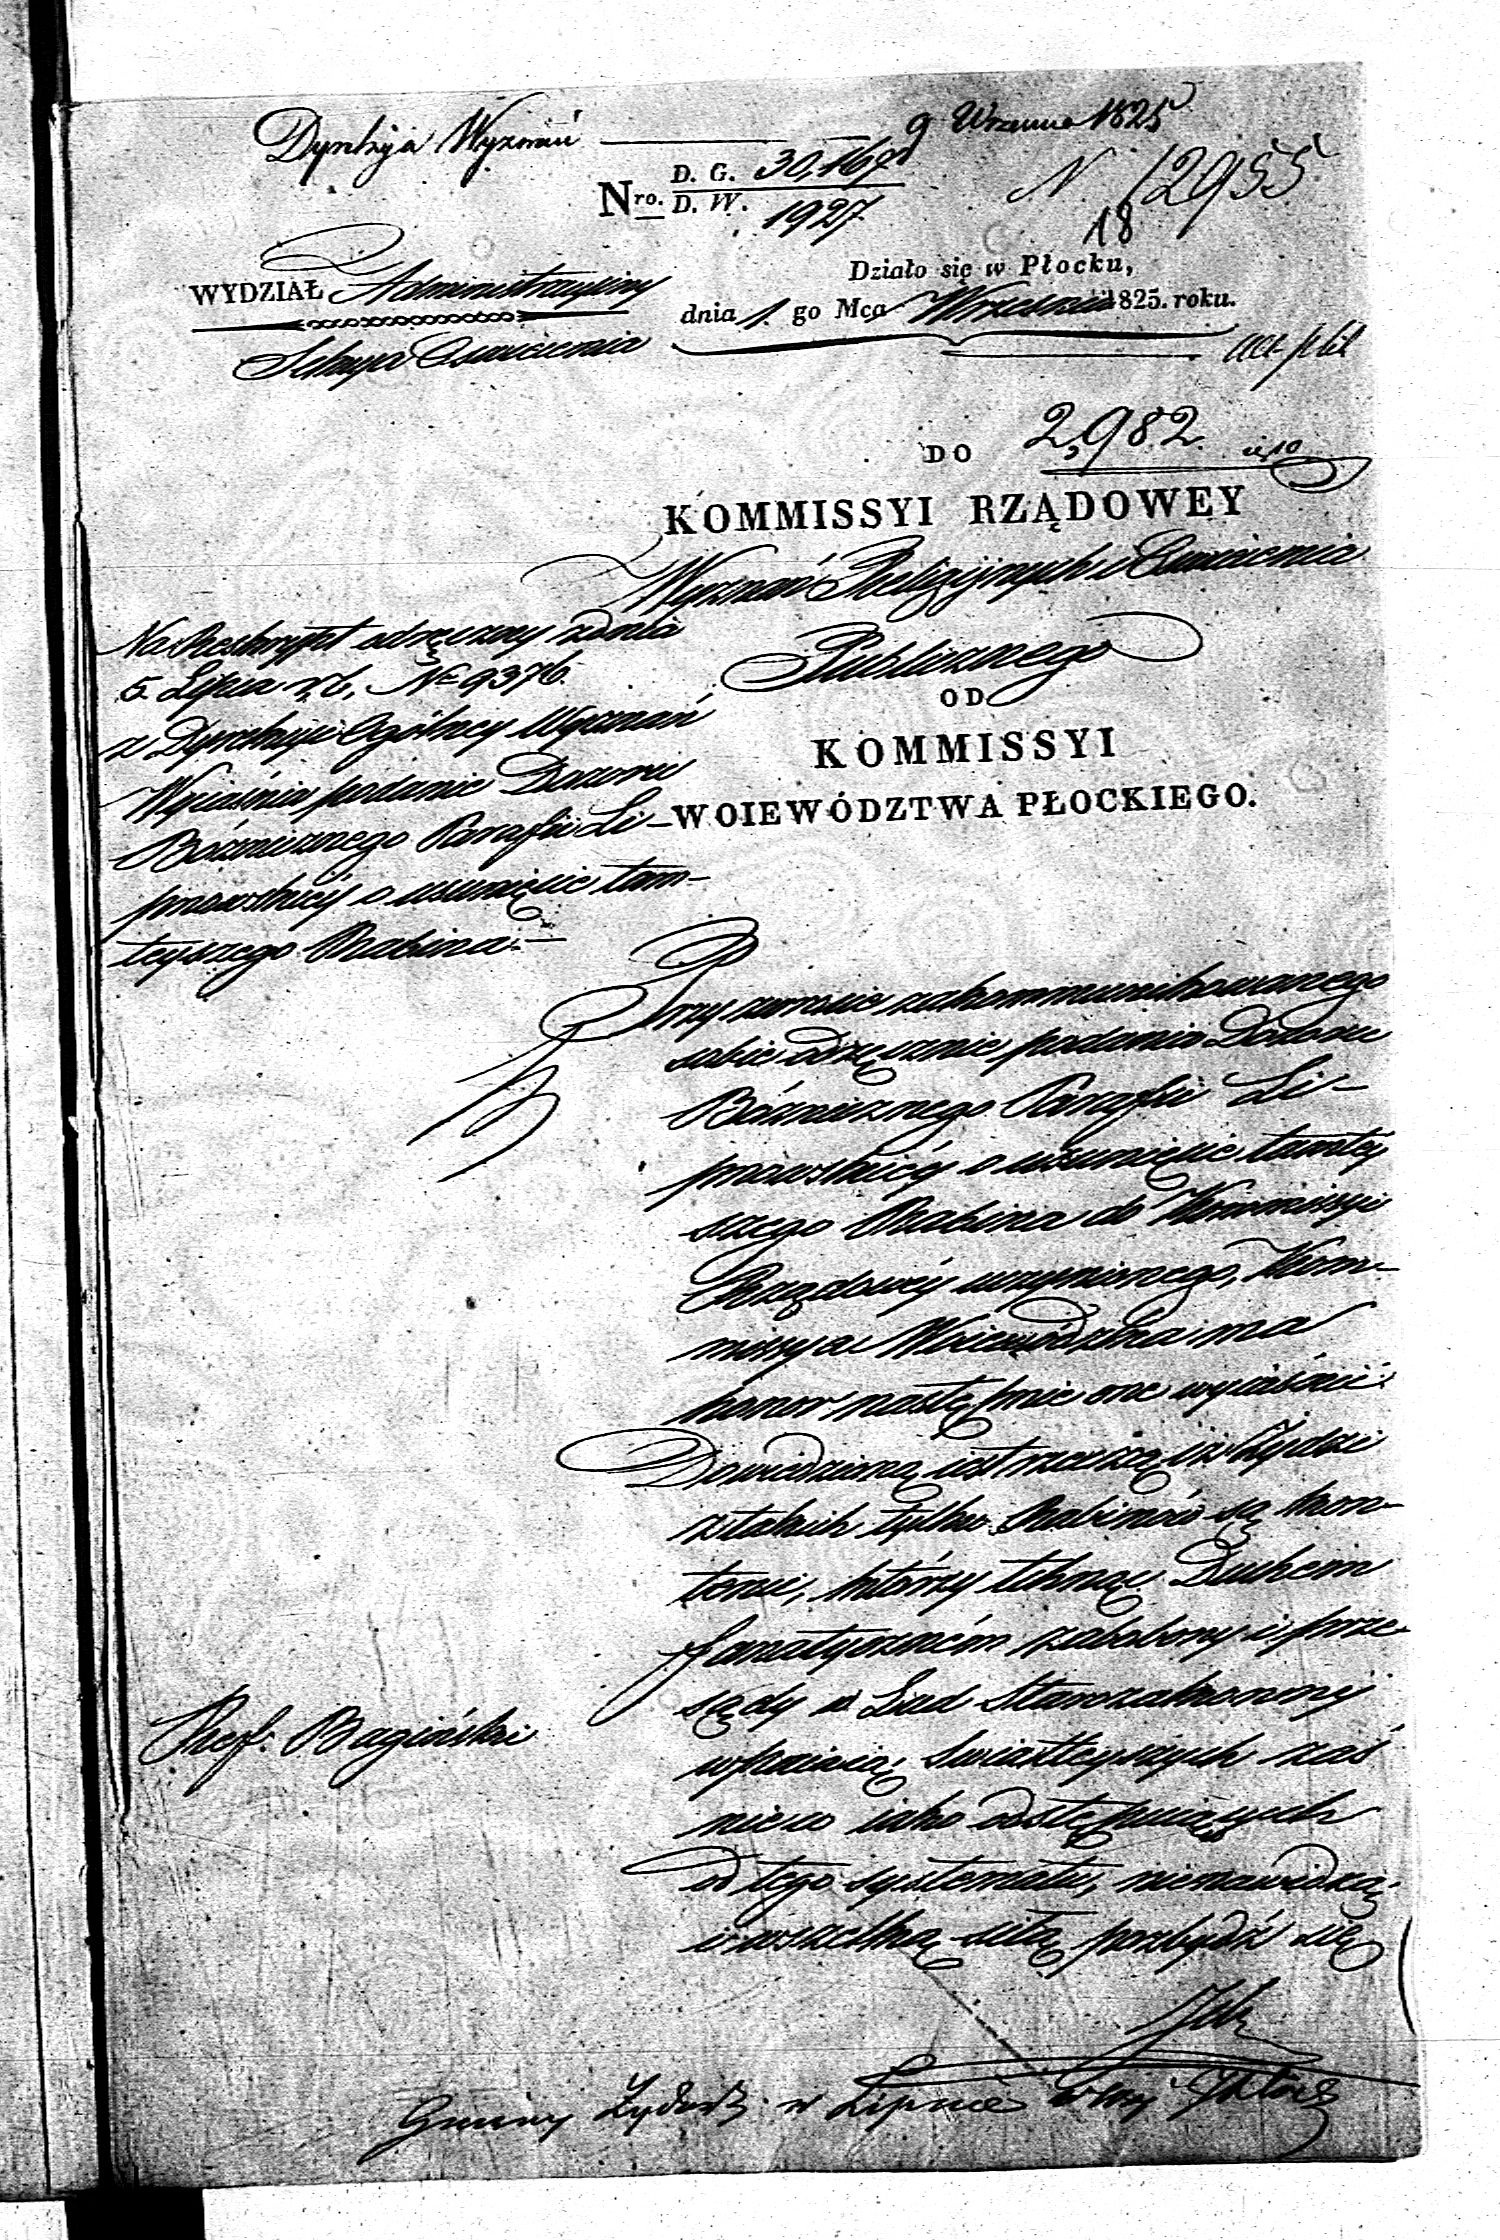 Dyrekcja Wyznań
9 Wrzesnia 1825
Nro. D. G. 30,167
D. W. 1927
N 12955
18
WYDZIAŁ Administracyiny
Sekcya Oświecenia
Działo się w Płocku,
dnia 1. go Mca Września 1825. roku.
DO 2,982.
KOMMISSYI RZĄDOWEY
Wyznań Religijnych i Oświecenia
Publicznego
OD
KOMMISSYI
WOIEWÓDZTWA PŁOCKIEGO.
Na Reskrypt odręczny z dnia
5. Lipca r.b. Nro 9376.
z Dyrekcyi Ogólney Wyznań
Wyiaśnia podanie Dozoru
Bóżniczego Parafii Li-
pnowskiey o usunięcie tam-
teyszego Rabina.—
Przy zwrocie zakommunikowanego
sobie odręcznie podania Dozoru
Bóżniczego Parafii Li-
pnowskiéy o usunięcie tamtey
szego Rabina do Kommissyi
Rządowéy uczynionego, Kom-
missya Woiewódzka ma
honor następnie one wyiaśnić.
Dowiedzioną iest rzeczą iż Żydzi
z takich tylko Rabinów są kon-
tenci, którzy tchnąc Duchem
fanatyzmem zabobony i prze-
sądy w Lud Starozakonny
wpaiaią, światleyszych zaś
nieco iako odstępuiących
od tego systematu, nienawidzą
i wszelką siłą pozbydź się
Ref. Bagiński
Gminy Żydowsk. w Lipnie